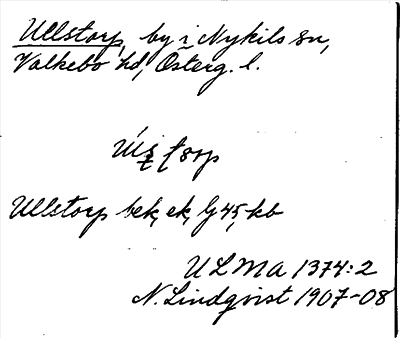 Ullstorp, by i Nykils sn,
Valkebo hd, Österg. l.
Ullstorp bek, ek, lj 45, kb
ULMA 1374:2
N. Lindqvist 1907-08